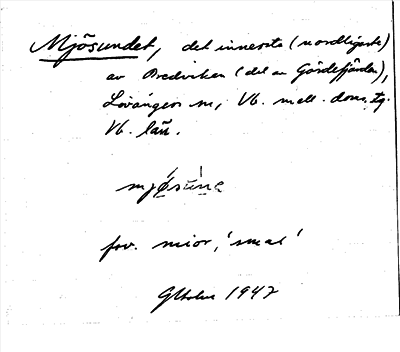 Mjösundet, det innersta (nordligaste)
av Bredviken (del av Gärdefjärden),
Lövångers sn, Vb. mell. doms. tg.
Vb. län.
mjǿsúnᴇ
fsv. mior, 'smal'
GHolm 1947